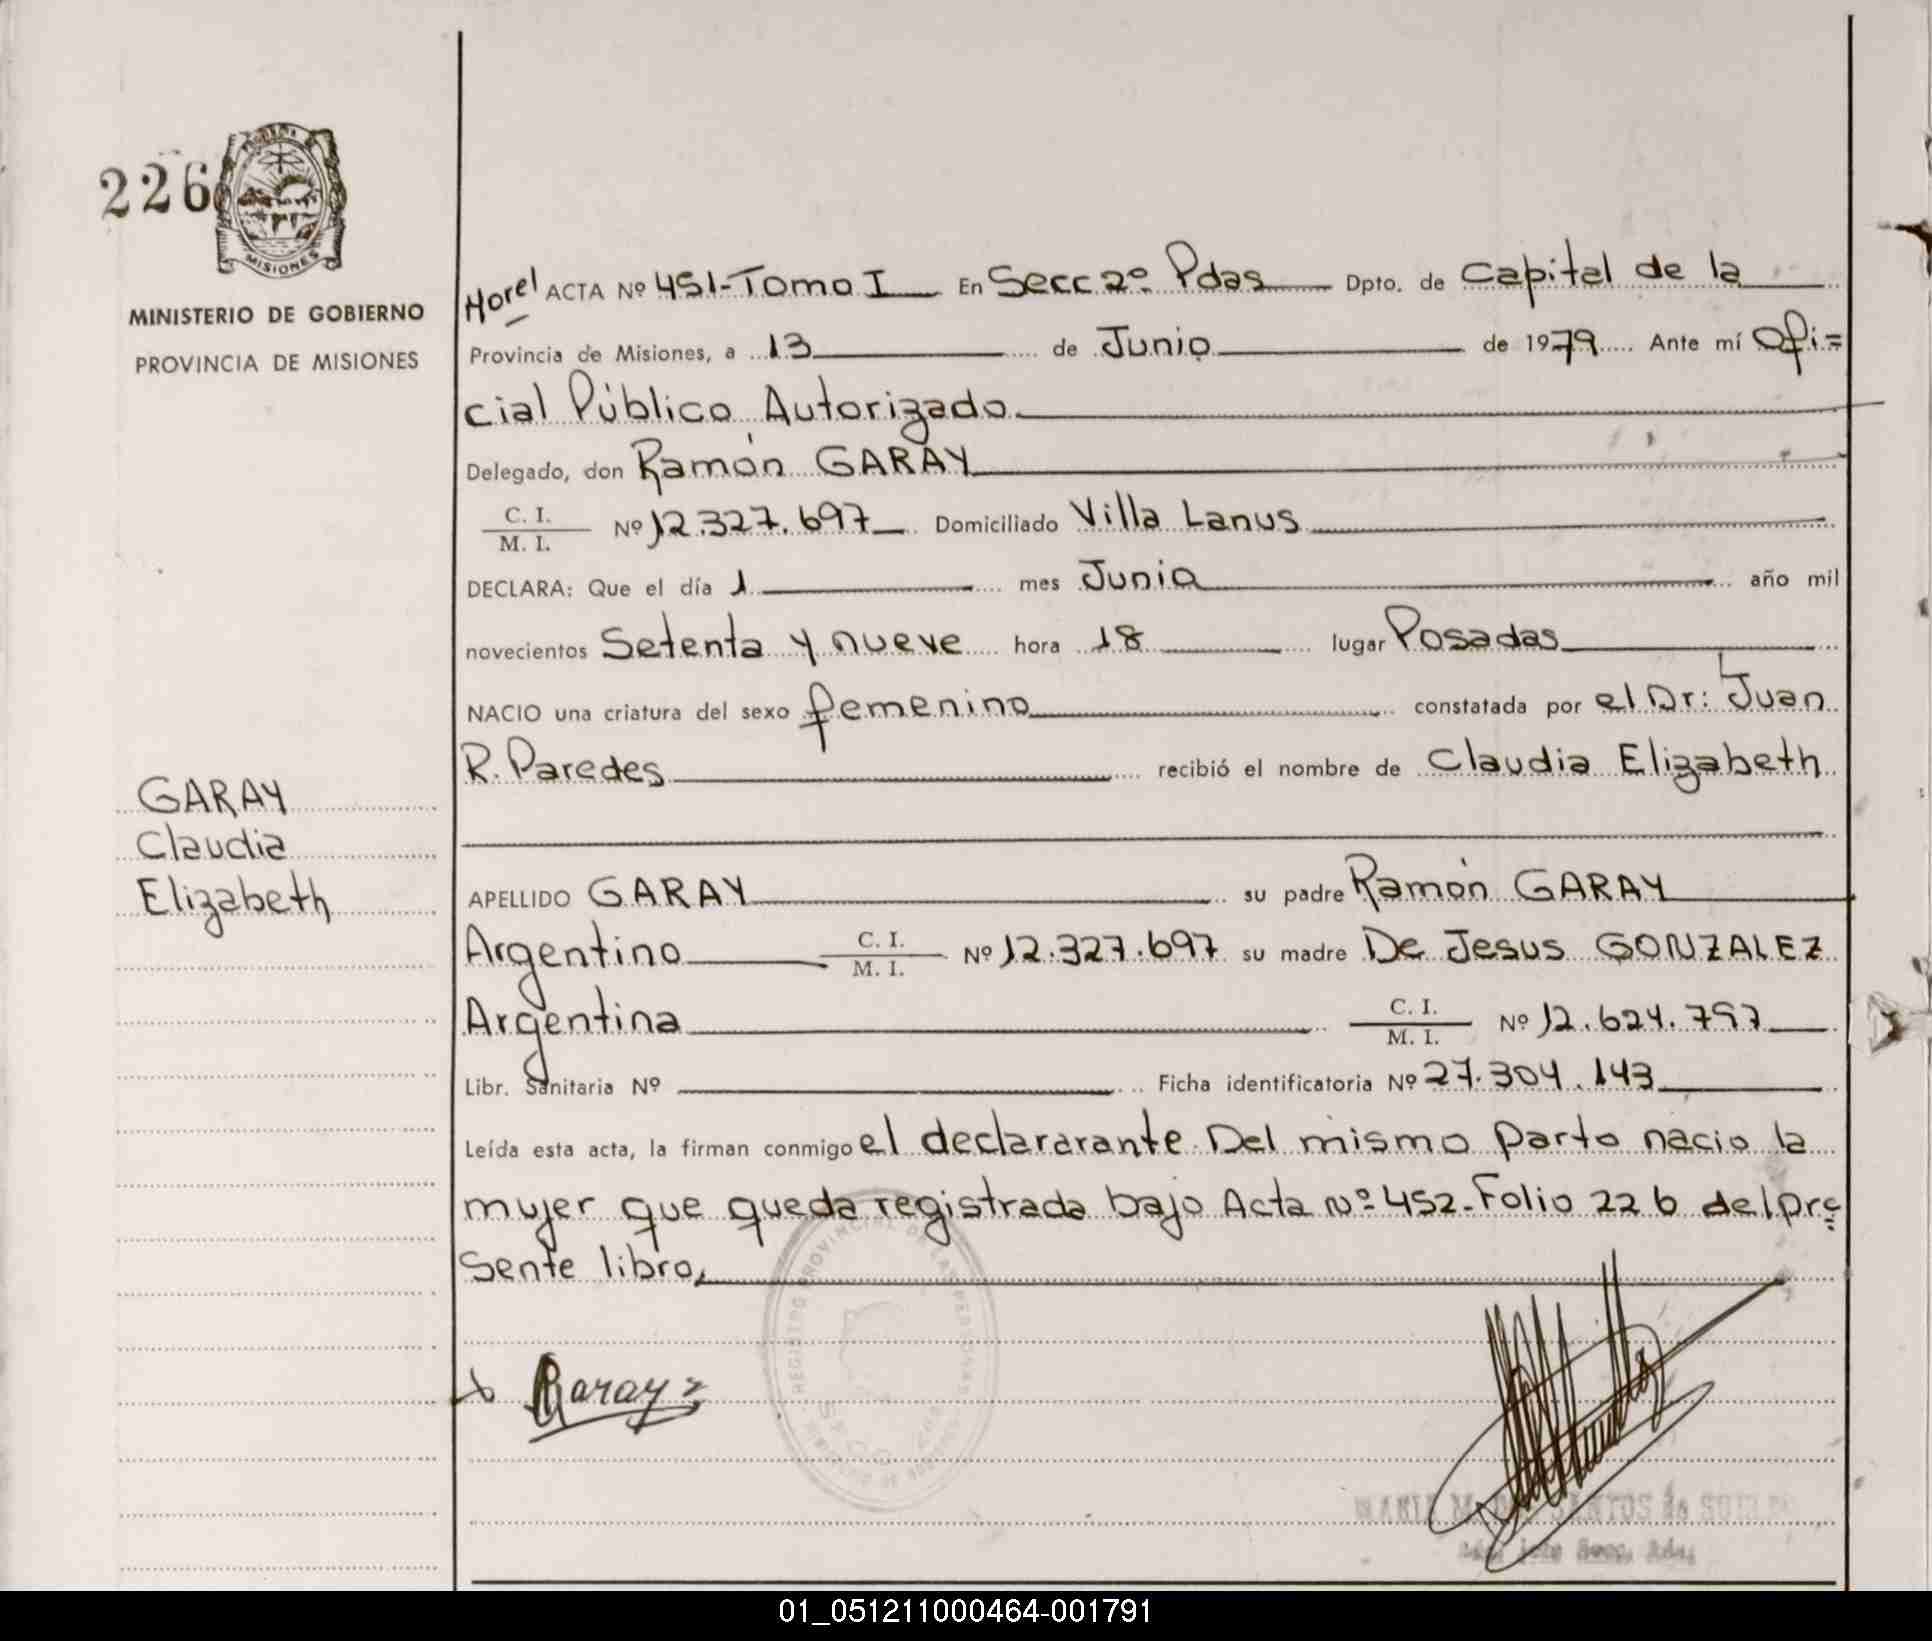 226
MISIONES
MINISTERIO DE GOBIERNO
PROVINCIA DE MISIONES
Horel ACTA Nº 451-Tomo I En Secc 2º Pdas Dpto. de Capital de la
Provincia de Misiones, a 13 de Junio de 1979 Ante mí Ofi=
cial Público Autorizado
Delegado, don Ramón GARAY
C. I.
M. I. Nº 12.327.697 Domiciliado Villa Lanus
DECLARA: Que el día 1 mes Junio año mil
novecientos Setenta y nueve hora 18 lugar Posadas
NACIO una criatura del sexo femenino constatada por el Dr: Juan
R. Paredes recibió el nombre de Claudia Elizabeth
GARAY
Claudia
Elizabeth
APELLIDO GARAY su padre Ramón GARAY
Argentino C. I.
M. I. Nº 12.327.697 su madre De Jesus GONZALEZ
Argentina C. I.
M. I. Nº 12.624.797
Libr. Sanitaria Nº Ficha identificatoria Nº 27.304.143
Leída esta acta, la firman conmigo el declararante. Del mismo parto nacio la
mujer que queda registrada bajo Acta Nº 452-Folio 226 del pre
sente libro,
Garay
01_051211000464-001791